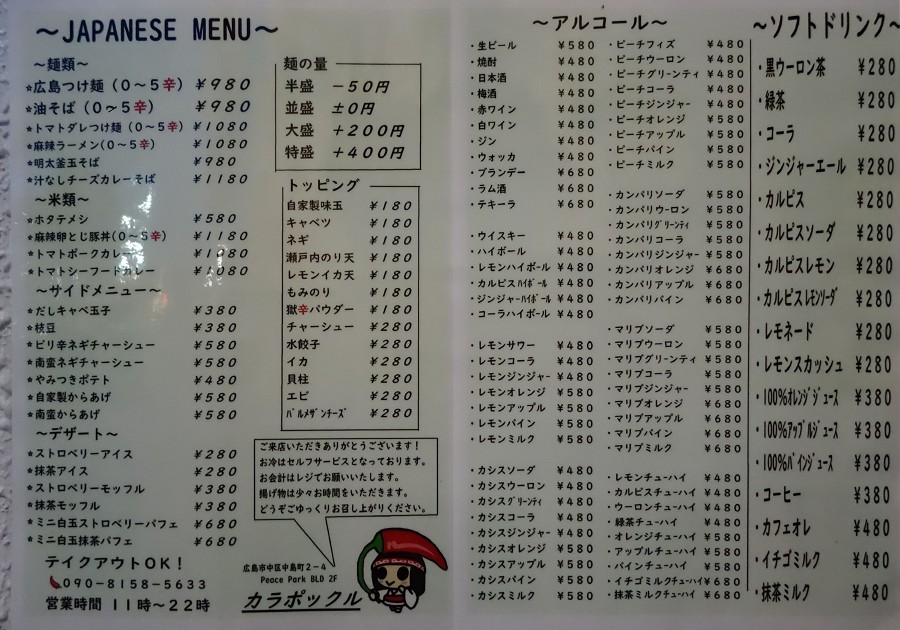 ～JAPANESE MENU～
～麺類～
★広島つけ麺（0～5辛）￥980
★油そば（0～5辛）￥980
★トマトダレつけ麺（0～5辛）￥1080
★麻辣ラーメン(0～5辛)￥1080
★明太釜玉そば ￥980
★汁なしチーズカレーそば ￥1180
～米類～
★ホタテメシ ￥580
★麻辣卵とじ豚丼(0～5辛)￥1180
★トマトポークカレー ￥1080
★トマトシーフードカレー ￥1080
～サイドメニュー～
★だしキャベ玉子 ￥380
★枝豆 ￥380
★ピリ辛ネギチャーシュー ￥580
★南蛮ネギチャーシュー ￥580
★やみつきポテト ￥480
★自家製からあげ ￥580
★南蛮からあげ ￥580
～デザート～
★ストロベリーアイス ￥280
★抹茶アイス ￥280
★ストロベリーモッフル ￥380
★抹茶モッフル ￥380
★ミニ白玉ストロベリーパフェ ￥680
★ミニ白玉抹茶パフェ ￥680
テイクアウトOK！
090-8158-5633
営業時間 11時～22時
麺の量
半盛 －50円
並盛 ±0円
大盛 ＋200円
特盛 ＋400円
トッピング
自家製味玉 ￥180
キャベツ ￥180
ネギ ￥180
瀬戸内のり天 ￥180
レモンイカ天 ￥180
もみのり ￥180
獄辛パウダー ￥180
チャーシュー ￥280
水餃子 ￥280
イカ ￥280
貝柱 ￥280
エビ ￥280
パルメザンチーズ ￥280
ご来店いただきありがとうございます！
お冷はセルフサービスとなっております。
お会計はレジでお願いいたします。
揚げ物は少々お時間をいただきます。
どうぞごゆっくりお召し上がりください。
広島市中区中島町2－4
Peace Park BLD 2F
カラポックル
～アルコール～
・生ビール ￥580
・焼酎 ￥480
・日本酒 ￥480
・梅酒 ￥480
・赤ワイン ￥480
・白ワイン ￥480
・ジン ￥480
・ウォッカ ￥480
・ブランデー ￥680
・ラム酒 ￥680
・テキーラ ￥680
・ウイスキー ￥480
・ハイボール ￥480
・レモンハイボール ￥480
・カルピスハイボール ￥480
・ジンジャーハイボール ￥480
・コーラハイボール ￥480
・レモンサワー ￥480
・レモンコーラ ￥480
・レモンジンジャー ￥480
・レモンオレンジ ￥580
・レモンアップル ￥580
・レモンパイン ￥580
・レモンミルク ￥580
・カシスソーダ ￥480
・カシスウーロン ￥480
・カシスグリーンティ ￥480
・カシスコーラ ￥480
・カシスジンジャー ￥480
・カシスオレンジ ￥580
・カシスアップル ￥580
・カシスパイン ￥580
・カシスミルク ￥580
・ピーチフィズ ￥480
・ピーチウーロン ￥480
・ピーチグリーンティ ￥480
・ピーチコーラ ￥480
・ピーチジンジャー ￥480
・ピーチオレンジ ￥580
・ピーチアップル ￥580
・ピーチパイン ￥580
・ピーチミルク ￥580
・カンパリソーダ ￥580
・カンパリウーロン ￥580
・カンパリグリーンティ ￥580
・カンパリコーラ ￥580
・カンパリジンジャー ￥580
・カンパリオレンジ ￥680
・カンパリアップル ￥680
・カンパリパイン ￥680
・マリブソーダ ￥580
・マリブウーロン ￥580
・マリブグリーンティ ￥580
・マリブコーラ ￥580
・マリブジンジャー ￥580
・マリブオレンジ ￥680
・マリブアップル ￥680
・マリブパイン ￥680
・マリブミルク ￥680
・レモンチューハイ ￥480
・カルピスチューハイ ￥480
・ウーロンチューハイ ￥480
・緑茶チューハイ ￥480
・オレンジチューハイ ￥580
・アップルチューハイ ￥580
・パインチューハイ ￥580
・イチゴミルクチューハイ ￥680
・抹茶ミルクチューハイ ￥680
～ソフトドリンク～
・黒ウーロン茶 ￥280
・緑茶 ￥280
・コーラ ￥280
・ジンジャーエール ￥280
・カルピス ￥280
・カルピスソーダ ￥280
・カルピスレモン ￥280
・カルピスレモンソーダ ￥280
・レモネード ￥280
・レモンスカッシュ ￥280
・100%オレンジジュース ￥380
・100%アップルジュース ￥380
・100%パインジュース ￥380
・コーヒー ￥380
・カフェオレ ￥480
・イチゴミルク ￥480
・抹茶ミルク ￥480